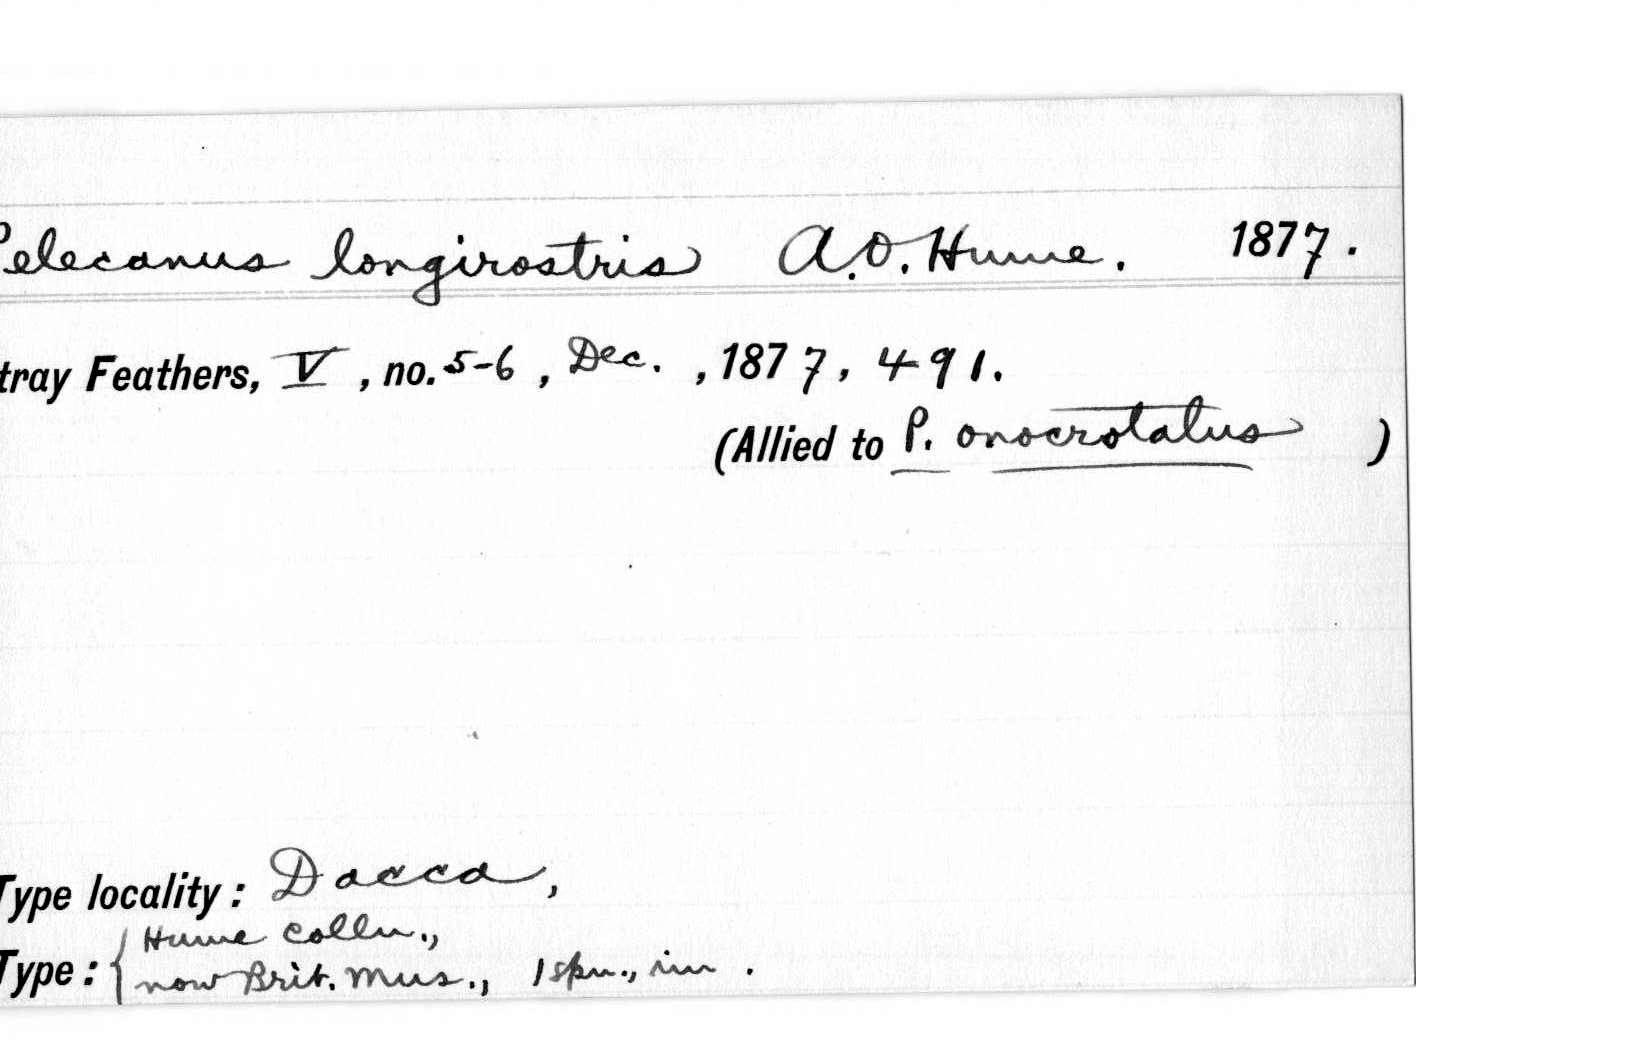 Pelecanus longirostris A.O. Hume. 1877.
tray Feathers, V, no. 5-6, Dec. , 1877, 491.
(Allied to P. onocrotalus )
Type locality: Dacca,
Hume colln.,
Type: now Brit. Mus., 1 spn., im .